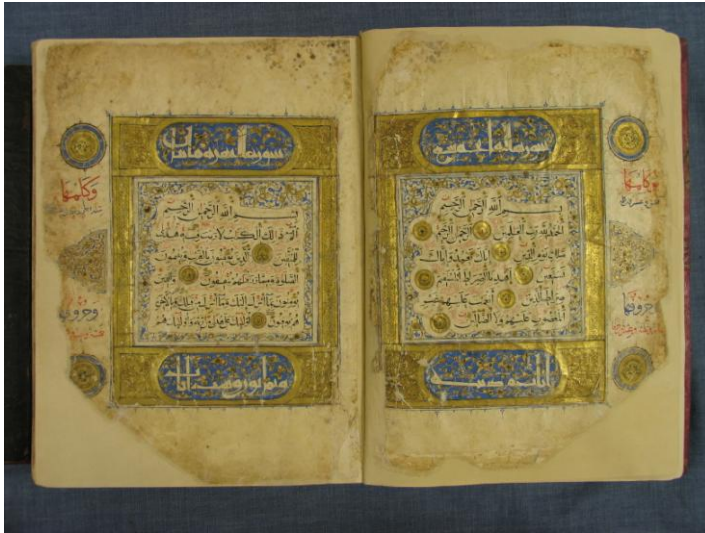 وكلمها
بسم الله الرحمن الرحيم
الحمد لله رب العلمين الرحمن الرحيم
ملك يوم الدين اياك نعبد واياك
نستعين اهدنا الصراط المستقيم
صراط الذين انعمت عليهم غير
المغضوب عليهم ولا الضالين
وحروفها
سورة البقرة مائتان
وكلمها
بسم الله الرحمن الرحيم
الم ذلك الكتب لا ريب فيه هدى
للمتقين الذين يؤمنون بالغيب ويقيمون
الصلوة ومما رزقنهم ينفقون والذين
يؤمنون بما انزل اليك وما انزل من قبلك وبالاخرة
هم يوقنون اولئك على هدى من ربهم واولئك هم
وحروفها
وثمانون وست ايات